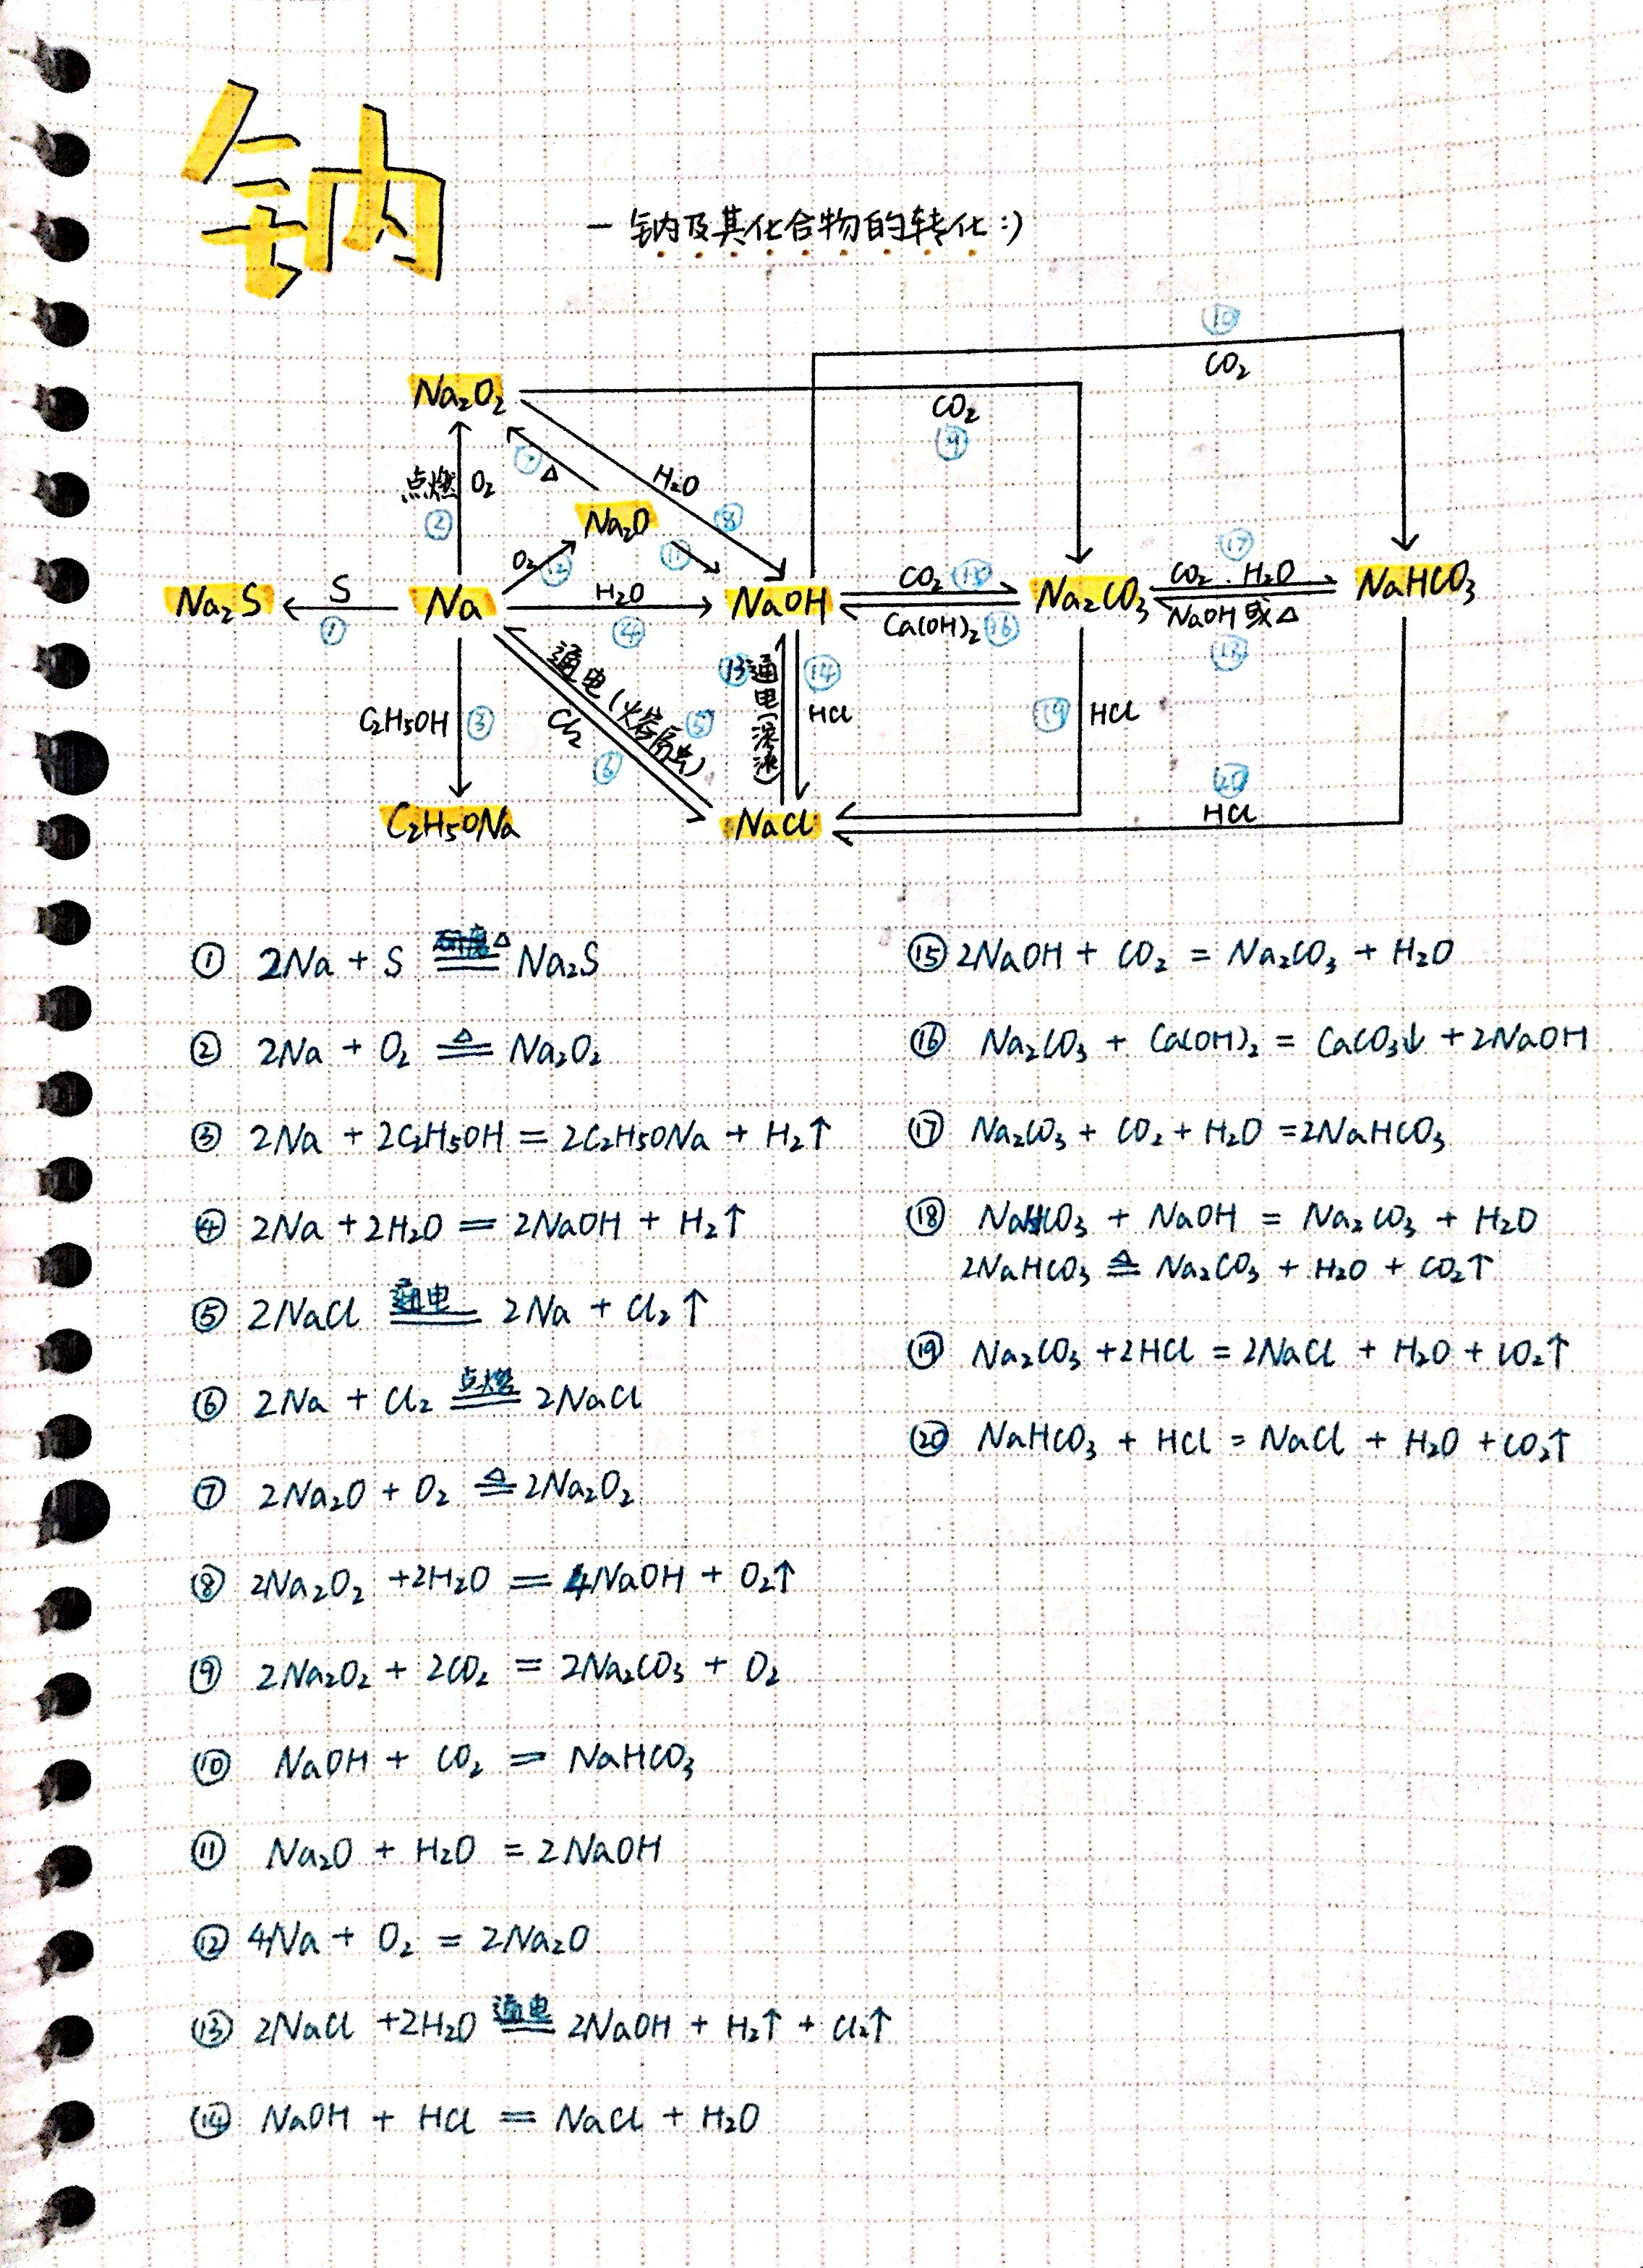 钠
一 钠及其化合物的转化:)
⑩
CO₂
Na₂O₂
CO₂
⑨
⑦ △
H₂O
点燃 O₂
⑧
②
Na₂O
O₂ ⑫
⑪
Na₂S
S
①
Na
H₂O
④
NaOH
CO₂ ⑮
Ca(OH)₂ ⑯
Na₂CO₃
⑰
CO₂ . H₂O
NaOH 或 △
⑱
NaHCO₃
C₂H₅OH ③
通电 (熔融) ⑤
Cl₂ ⑥
13 通电(溶液)
⑭
HCl
⑲ HCl
⑳
HCl
C₂H₅ONa
NaCl
① 2Na + S △ Na₂S
② 2Na + O₂ ≜ Na₂O₂
③ 2Na + 2C₂H₅OH = 2C₂H₅ONa + H₂↑
④ 2Na + 2H₂O = 2NaOH + H₂↑
⑤ 2NaCl 通电 2Na + Cl₂↑
⑥ 2Na + Cl₂ 点燃 2NaCl
⑦ 2Na₂O + O₂ ≜ 2Na₂O₂
⑧ 2Na₂O₂ + 2H₂O = 4NaOH + O₂↑
⑨ 2Na₂O₂ + 2CO₂ = 2Na₂CO₃ + O₂
⑩ NaOH + CO₂ = NaHCO₃
⑪ Na₂O + H₂O = 2NaOH
⑫ 4Na + O₂ = 2Na₂O
⑬ 2NaCl + 2H₂O 通电 2NaOH + H₂↑ + Cl₂↑
⑭ NaOH + HCl = NaCl + H₂O
⑮ 2NaOH + CO₂ = Na₂CO₃ + H₂O
⑯ Na₂CO₃ + Ca(OH)₂ = CaCO₃↓ + 2NaOH
⑰ Na₂CO₃ + CO₂ + H₂O = 2NaHCO₃
⑱ NaHCO₃ + NaOH = Na₂CO₃ + H₂O
2NaHCO₃ ≜ Na₂CO₃ + H₂O + CO₂↑
⑲ Na₂CO₃ + 2HCl = 2NaCl + H₂O + CO₂↑
⑳ NaHCO₃ + HCl = NaCl + H₂O + CO₂↑